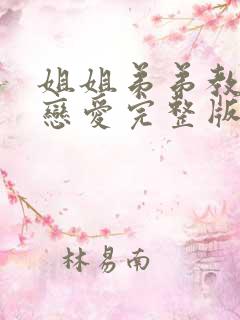 姐姐弟弟教
戀愛完整版
林易南